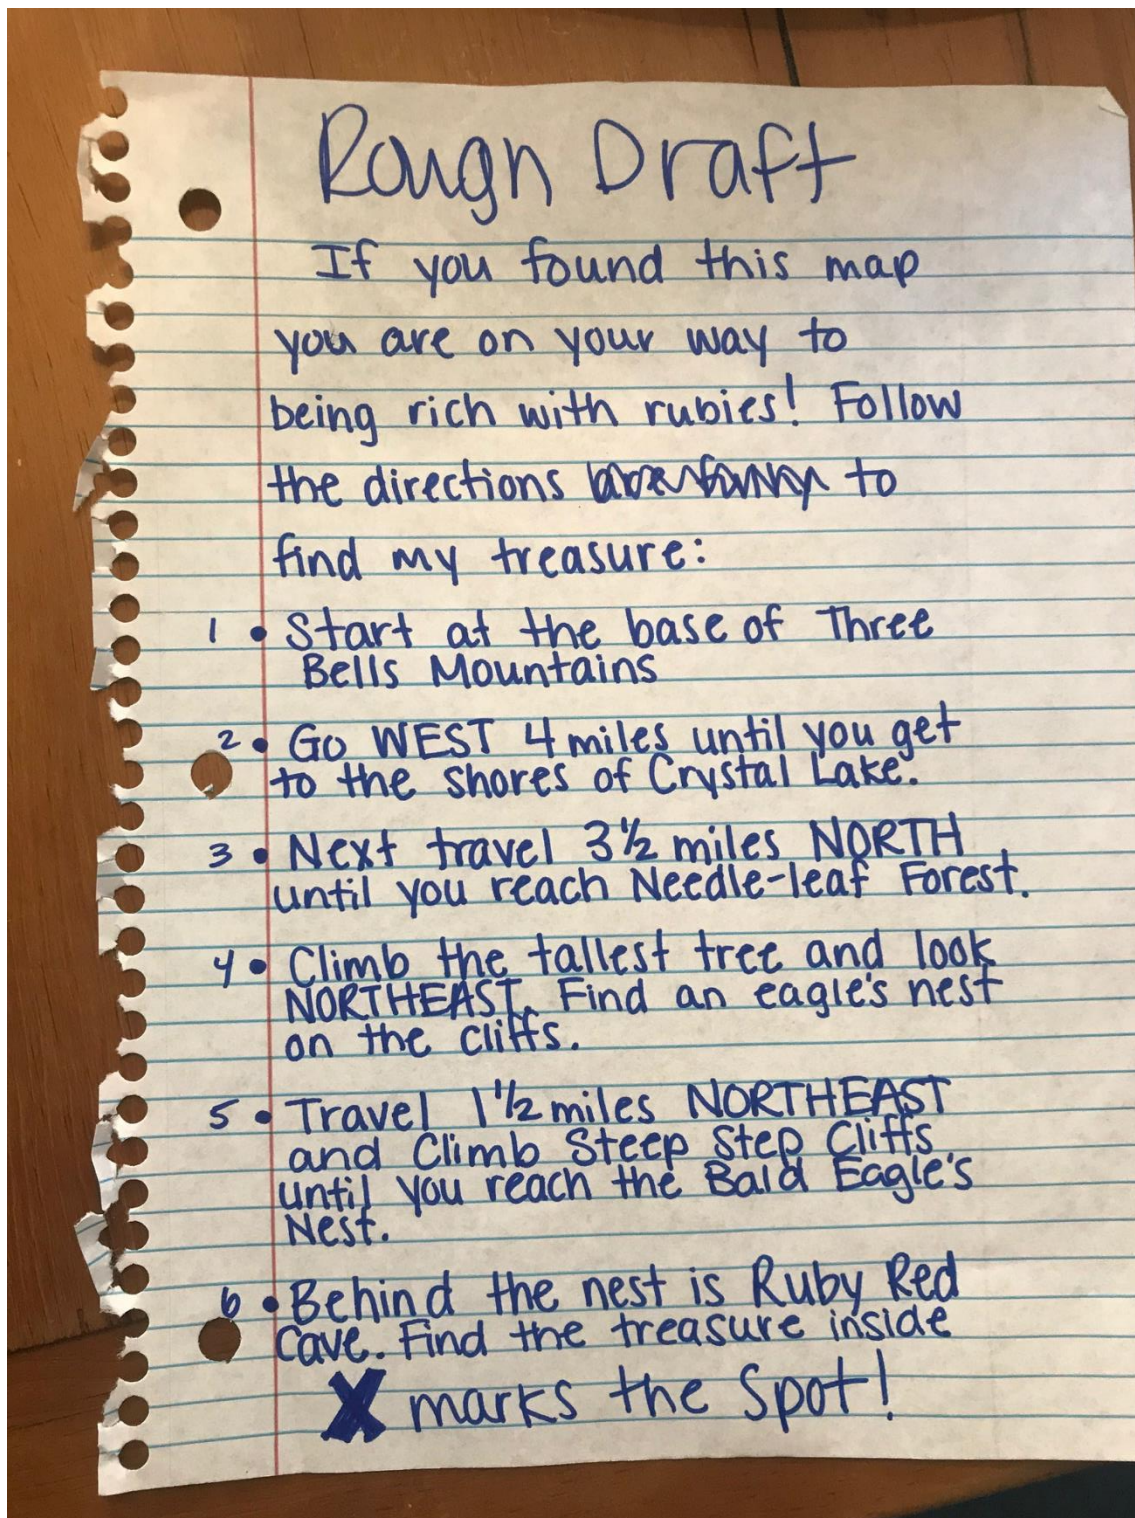 Rough Draft
If you found this map
you are on your way to
being rich with rubies! Follow
the directions to
find my treasure:
1 • Start at the base of Three
Bells Mountains
2 • Go WEST 4 miles until you get
to the shores of Crystal Lake.
3 • Next travel 3 1/2 miles NORTH
until you reach Needle-leaf Forest.
4 • Climb the tallest tree and look
NORTHEAST. Find an eagle's nest
on the cliffs.
5 • Travel 1 1/2 miles NORTHEAST
and Climb Steep Step Cliffs
until you reach the Bald Eagle's
Nest.
6 • Behind the nest is Ruby Red
Cave. Find the treasure inside
X marks the Spot!